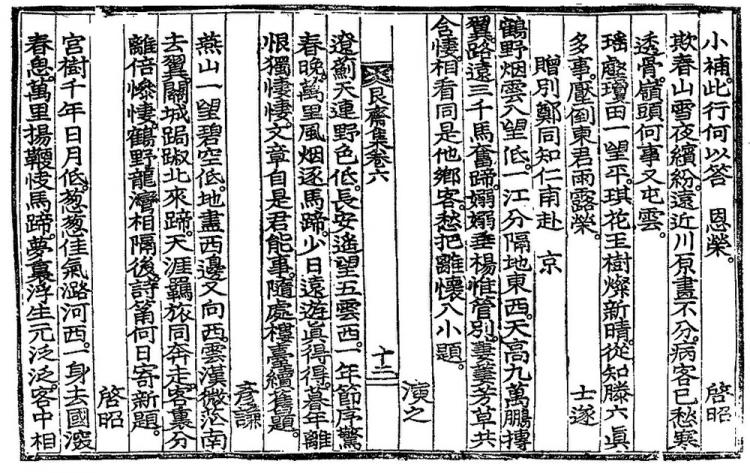 小補。此行何以答　恩榮。　啓昭
欺春山雪夜繽紛。遠近川原畫不分。病客已愁寒
透骨。嶺頭何事又屯雲。
瑶壺瓊田一望平。琪花玉樹燦新晴。從知滕六眞
多事。壓倒東君雨露榮。　士遂
贈別鄭同知仁甫赴　京
鶴野烟雲入望低。一江分隔地東西。天高九萬鵬摶
翼。路遠三千馬奮蹄。嫋嫋垂楊惟管別。萋萋芳草共
含悽。相看同是他鄕客。愁把離懷入小題。　演之
艮齋集卷六　十二
遼薊天連野色低。長安遙望五雲西。一年節序驚
春晚。萬里風烟逐馬蹄。少日遠遊眞得得。暮年離
恨獨悽悽。文章自是君能事。隨處樓臺續舊題。　彦謙
燕山一望碧空低。地盡西邊又向西。雲漢微茫南
去翼。關城跼蹐北來蹄。天涯羈旅同奔走。客裏分
離倍慘悽。鶴野龍灣相隔後。詩筩何日寄新題。　啓昭
宮樹千年日月低。葱葱佳氣潞河西。一身去國深
春思。萬里揚鞭快馬蹄。夢裏浮生元泛泛。客中相